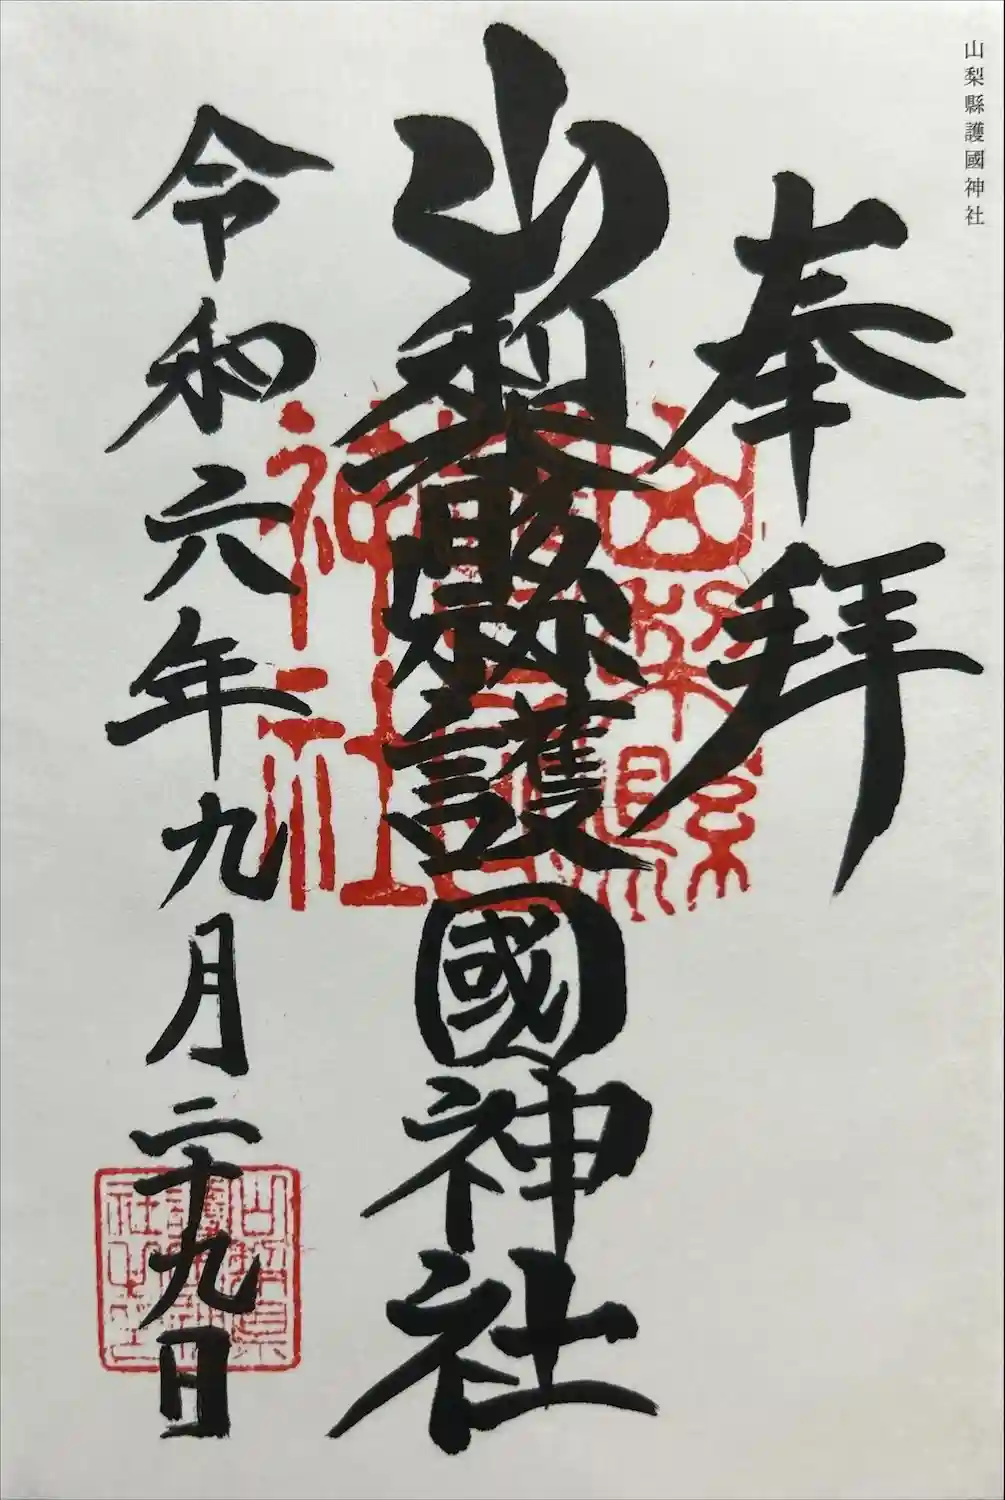 山梨縣護國神社
奉拝
山梨縣護國神社
令和六年九月二十九日
山梨縣護國神社